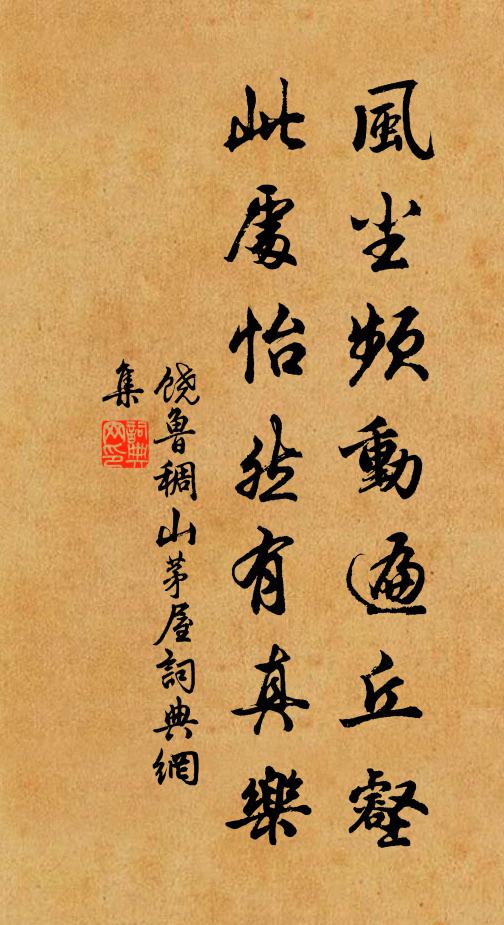 風尘頻動遍丘壑
此處怡然有真樂
饶魯稠山茅屋詞典網
集
詞典網印